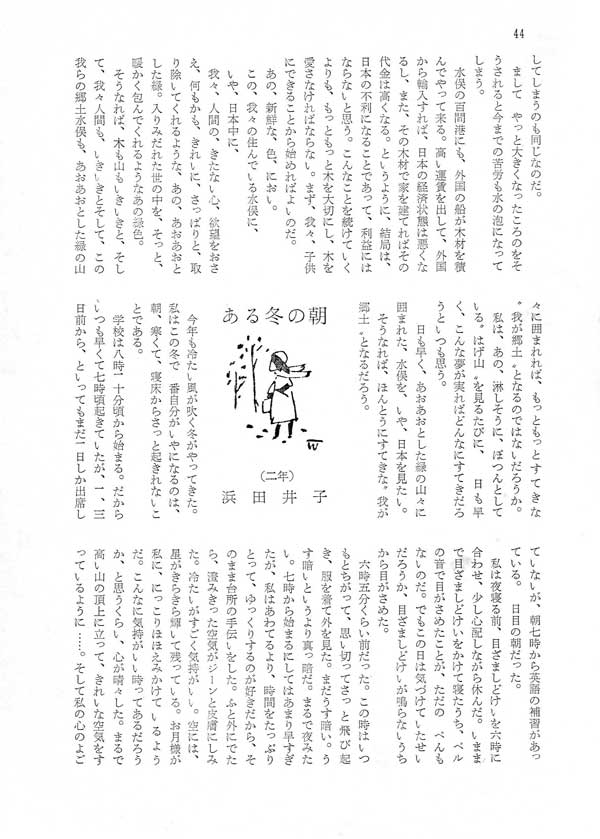 44
してしまうのも同じなのだ。
まして やっと大きくなったころのをそ
うされると今までの苦労も水の泡になって
しまう。
水俣の百間港にも、外国の船が木材を積
んでやって来る。高い運賃を出して、外国
から輸入すれば、日本の経済状態は悪くな
るし、また、その木材で家を建てればその
代金は高くなる。というように、結局は、
日本の不利になることであって、利益には
ならないと思う。こんなことを続けていく
よりも、もっともっと木を大切にし、木を
愛さなければならない。まず、我々、子供
にできることから始めればよいのだ。
あの、新鮮な、色、におい。
この、我々の住んでいる水俣に、
いや、日本中に、
我々、人間の、きたない心、欲望をおさ
え、何もかも、きれいに、さっぱりと、取
り除いてくれるような、あの、あおあおと
した緑。入りみだれた世の中を、そっと、
暖かく包んでくれるようなあの緑色。
そうなれば、木も山もいきいきと、そし
て、我々人間も、いきいきとそして、この
我らの郷土水俣も、あおあおとした緑の山
々に囲まれれば、もっともっとすてきな
〝我が郷土〟となるのではないだろうか。
私は、あの、淋しそうに、ぽつんとして
いる〝はげ山〟を見るたびに、 日も早
く、こんな夢が実ればどんなにすてきだろ
うといつも思う。
日も早く、あおあおとした緑の山々に
囲まれた、水俣を、いや、日本を見たい。
そうなれば、ほんとうにすてきな〝我が
郷土〟となるだろう。
ある冬の朝
(二年)
浜田井子
今年も冷たい風が吹く冬がやってきた。
私はこの冬で 番自分がいやになるのは、
朝、寒くて、寝床からさっと起きれないこ
とである。
学校は八時二十分頃から始まる。だから
いつも早くて七時頃起きていたが、一、三
日前から、といってもまだ一日しか出席し
ていないが、朝七時から英語の補習があっ
ている。 日目の朝だった。
私は夜寝る前、目ざましどけいを六時に
合わせ、少し心配しながら休んだ。いまま
で目ざましどけいをかけて寝たうち、ベル
の音で目がさめたことが、ただの べんも
ないのだ。でもこの日は気づけていたせい
だろうか、目ざましどけいが鳴らないうち
から目がさめた。
六時五分くらい前だった。この時はいつ
もとちがって、思い切ってさっと飛び起
き、服を着て外を見た。まだうす暗い。う
す暗いというより真っ暗だ。まるで夜みた
い。七時から始まるにしてはあまり早すぎ
たが、私はあわてるより、時間をたっぷり
とって、ゆっくりするのが好きだから、そ
のまま台所の手伝いをした。ふと外にでた
ら、澄みきった空気がジーンと皮膚にしみ
た。冷たいがすごく気持がいい。空には、
星がきらきら輝いて残っている。お月様が
私に、にっこりほほえみかけているよう
だ。こんなに気持がいい時ってあるだろう
か、と思うくらい、心が晴々した。まるで
高い山の頂上に立って、きれいな空気をす
っているように……。そして私の心のよご